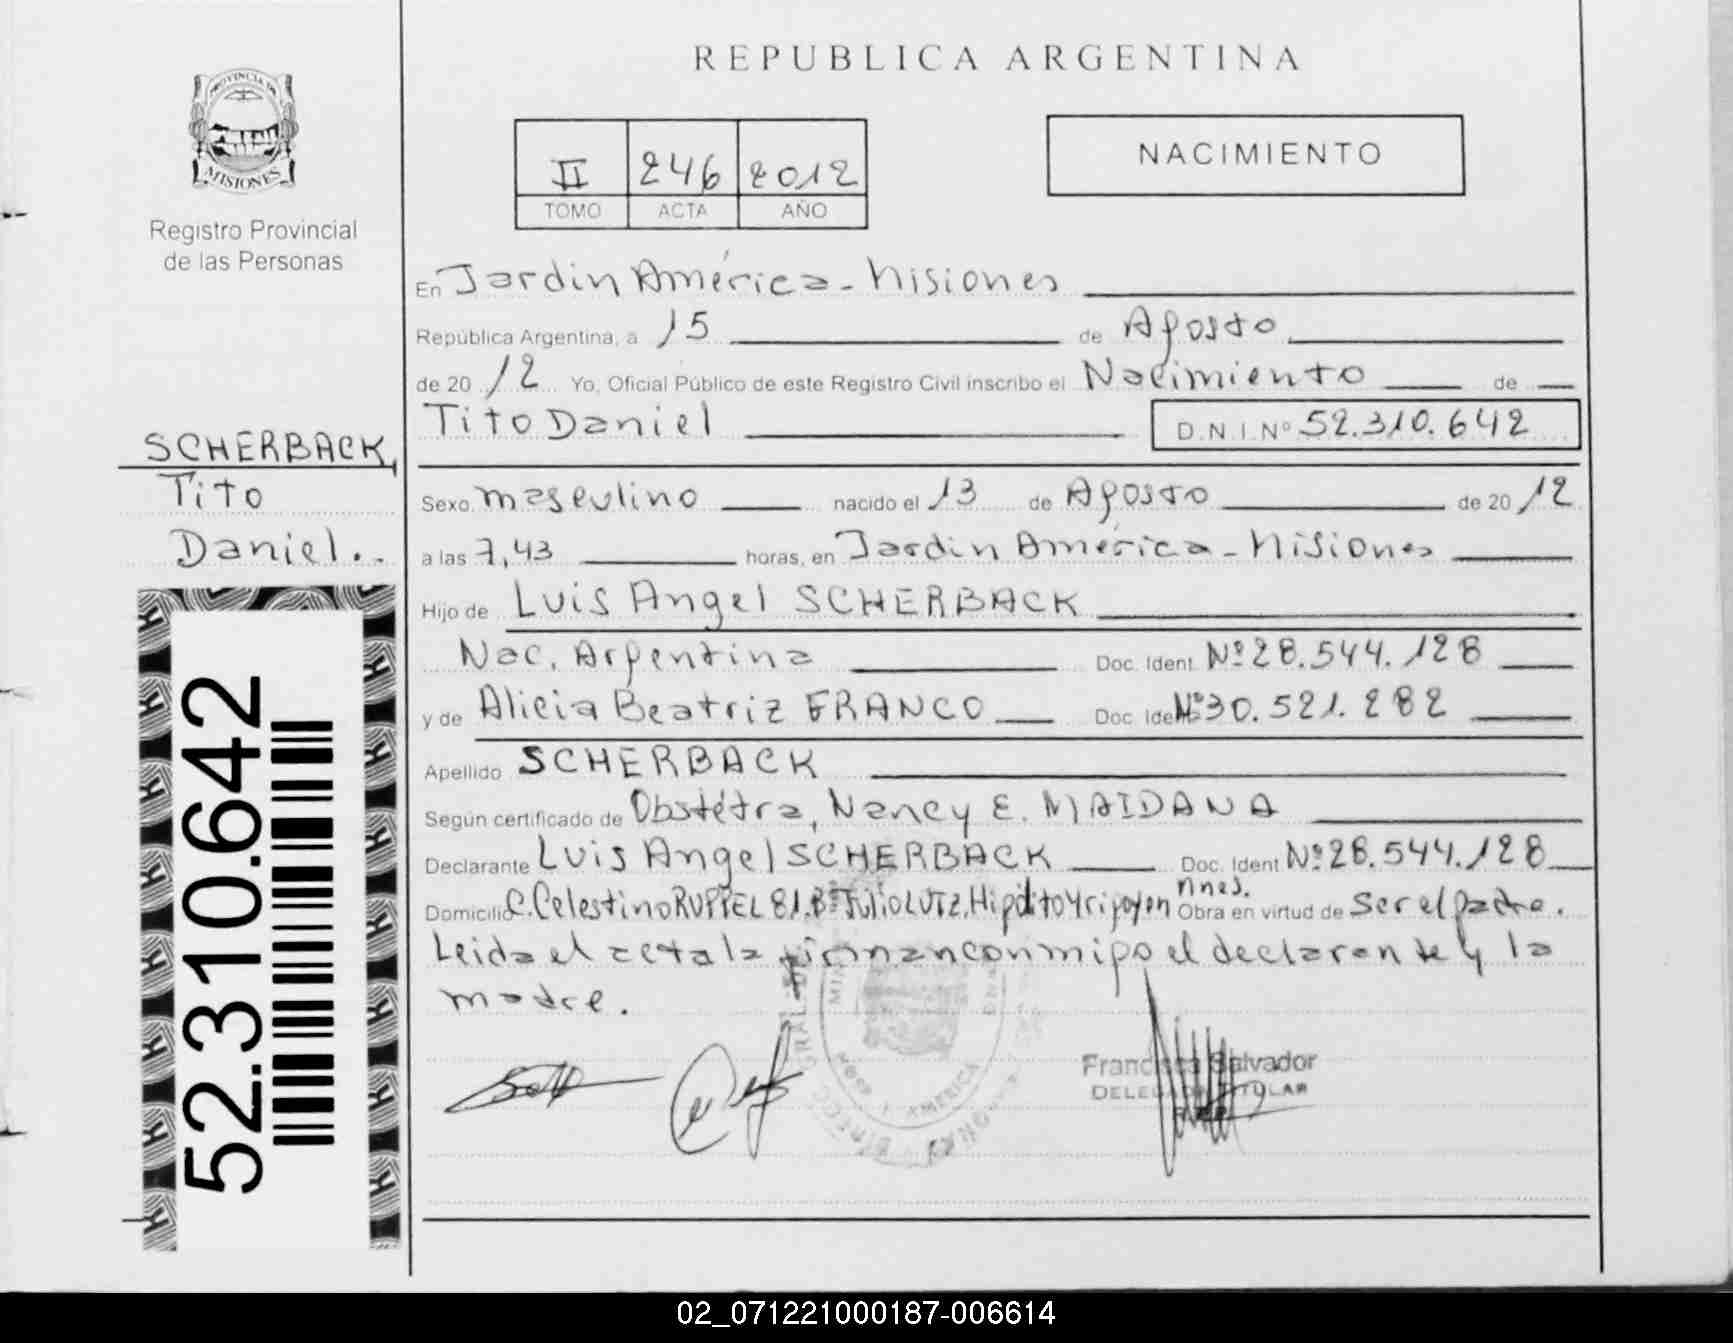 REPUBLICA ARGENTINA
PROVINCIA DE
MISIONES
Registro Provincial
de las Personas
II 246 2012
TOMO ACTA AÑO
NACIMIENTO
En Jardin América - Misiones
República Argentina, a 15 de Agosto
de 20 12 Yo, Oficial Público de este Registro Civil inscribo el Nacimiento de
Tito Daniel D.N.I.Nº 52.310.642
SCHERBACK,
Tito
Daniel..
Sexo masculino nacido el 13 de Agosto de 20 12
a las 7,43 horas, en Jardin América - Misiones
Hijo de Luis Angel SCHERBACK
Nac. Argentina Doc. Ident. Nº 28.544.128
y de Alicia Beatriz FRANCO Doc. Ident. Nº 30.521.282
Apellido SCHERBACK
Según certificado de Obstétra, Nancy E. MAIDANA
Declarante Luis Angel SCHERBACK Doc. Ident. Nº 28.544.128
Domicilio C. Celestino RUPPEL 81. Bº Julio LUTZ. Hipólito Yrigoyen mnes. Obra en virtud de Ser el padre.
Leida el acta la firman conmigo el declarante y la
madre.
Francisca Salvador
DELEGADO TITULAR
AMERICA
52.310.642
02_071221000187-006614